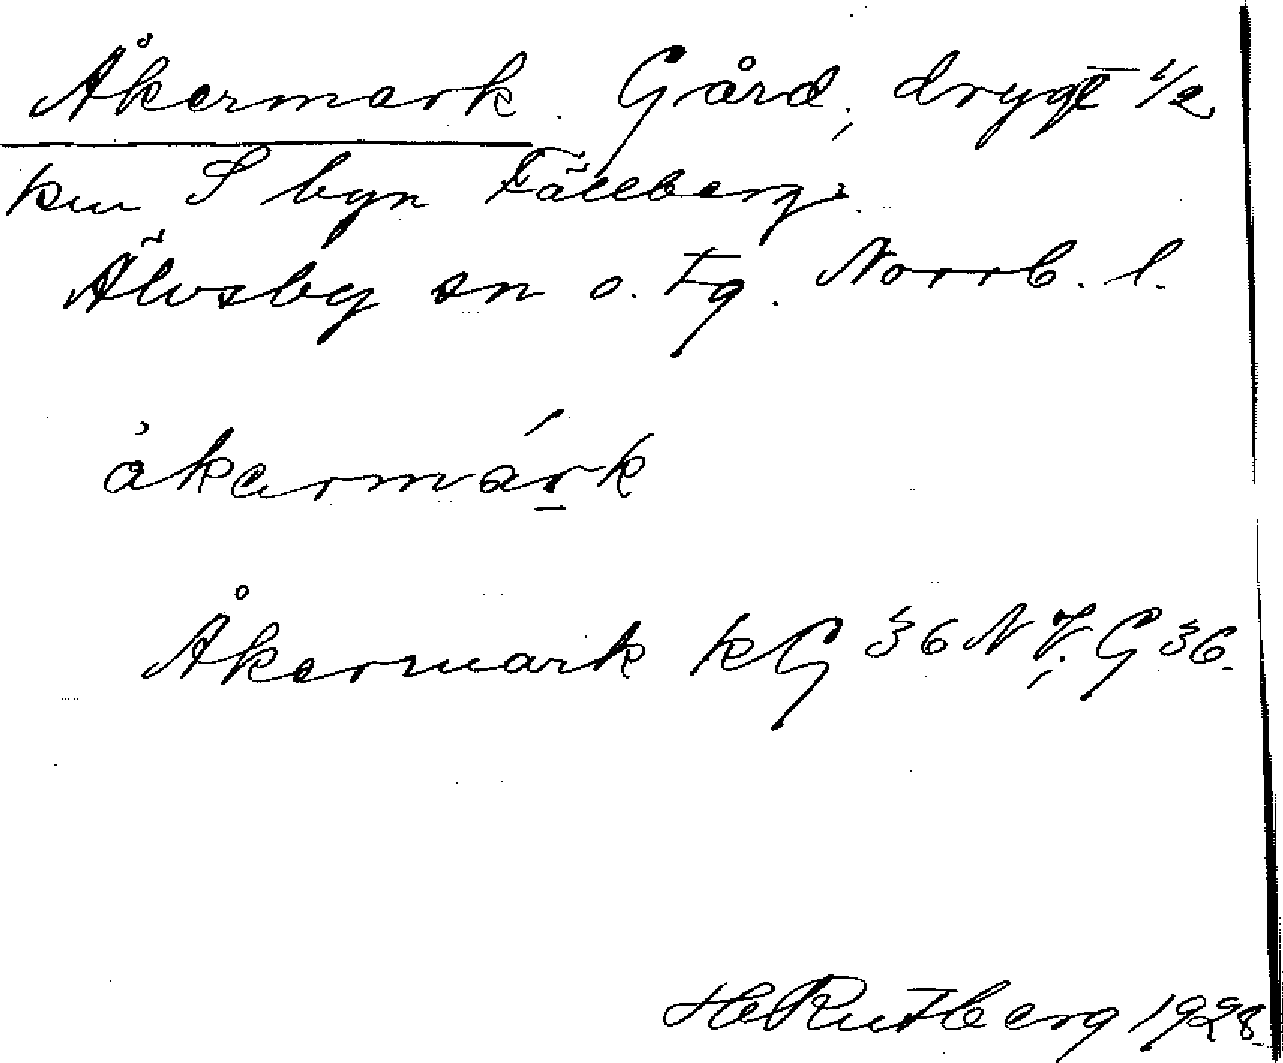 Åkermark. Gård, drygt 1/2
km S byn Fällberg.
Älvsby sn o. tg. Norrb. l.
åkermárk
Åkermark kG 36 NV, G 36.
H Rutberg 1928